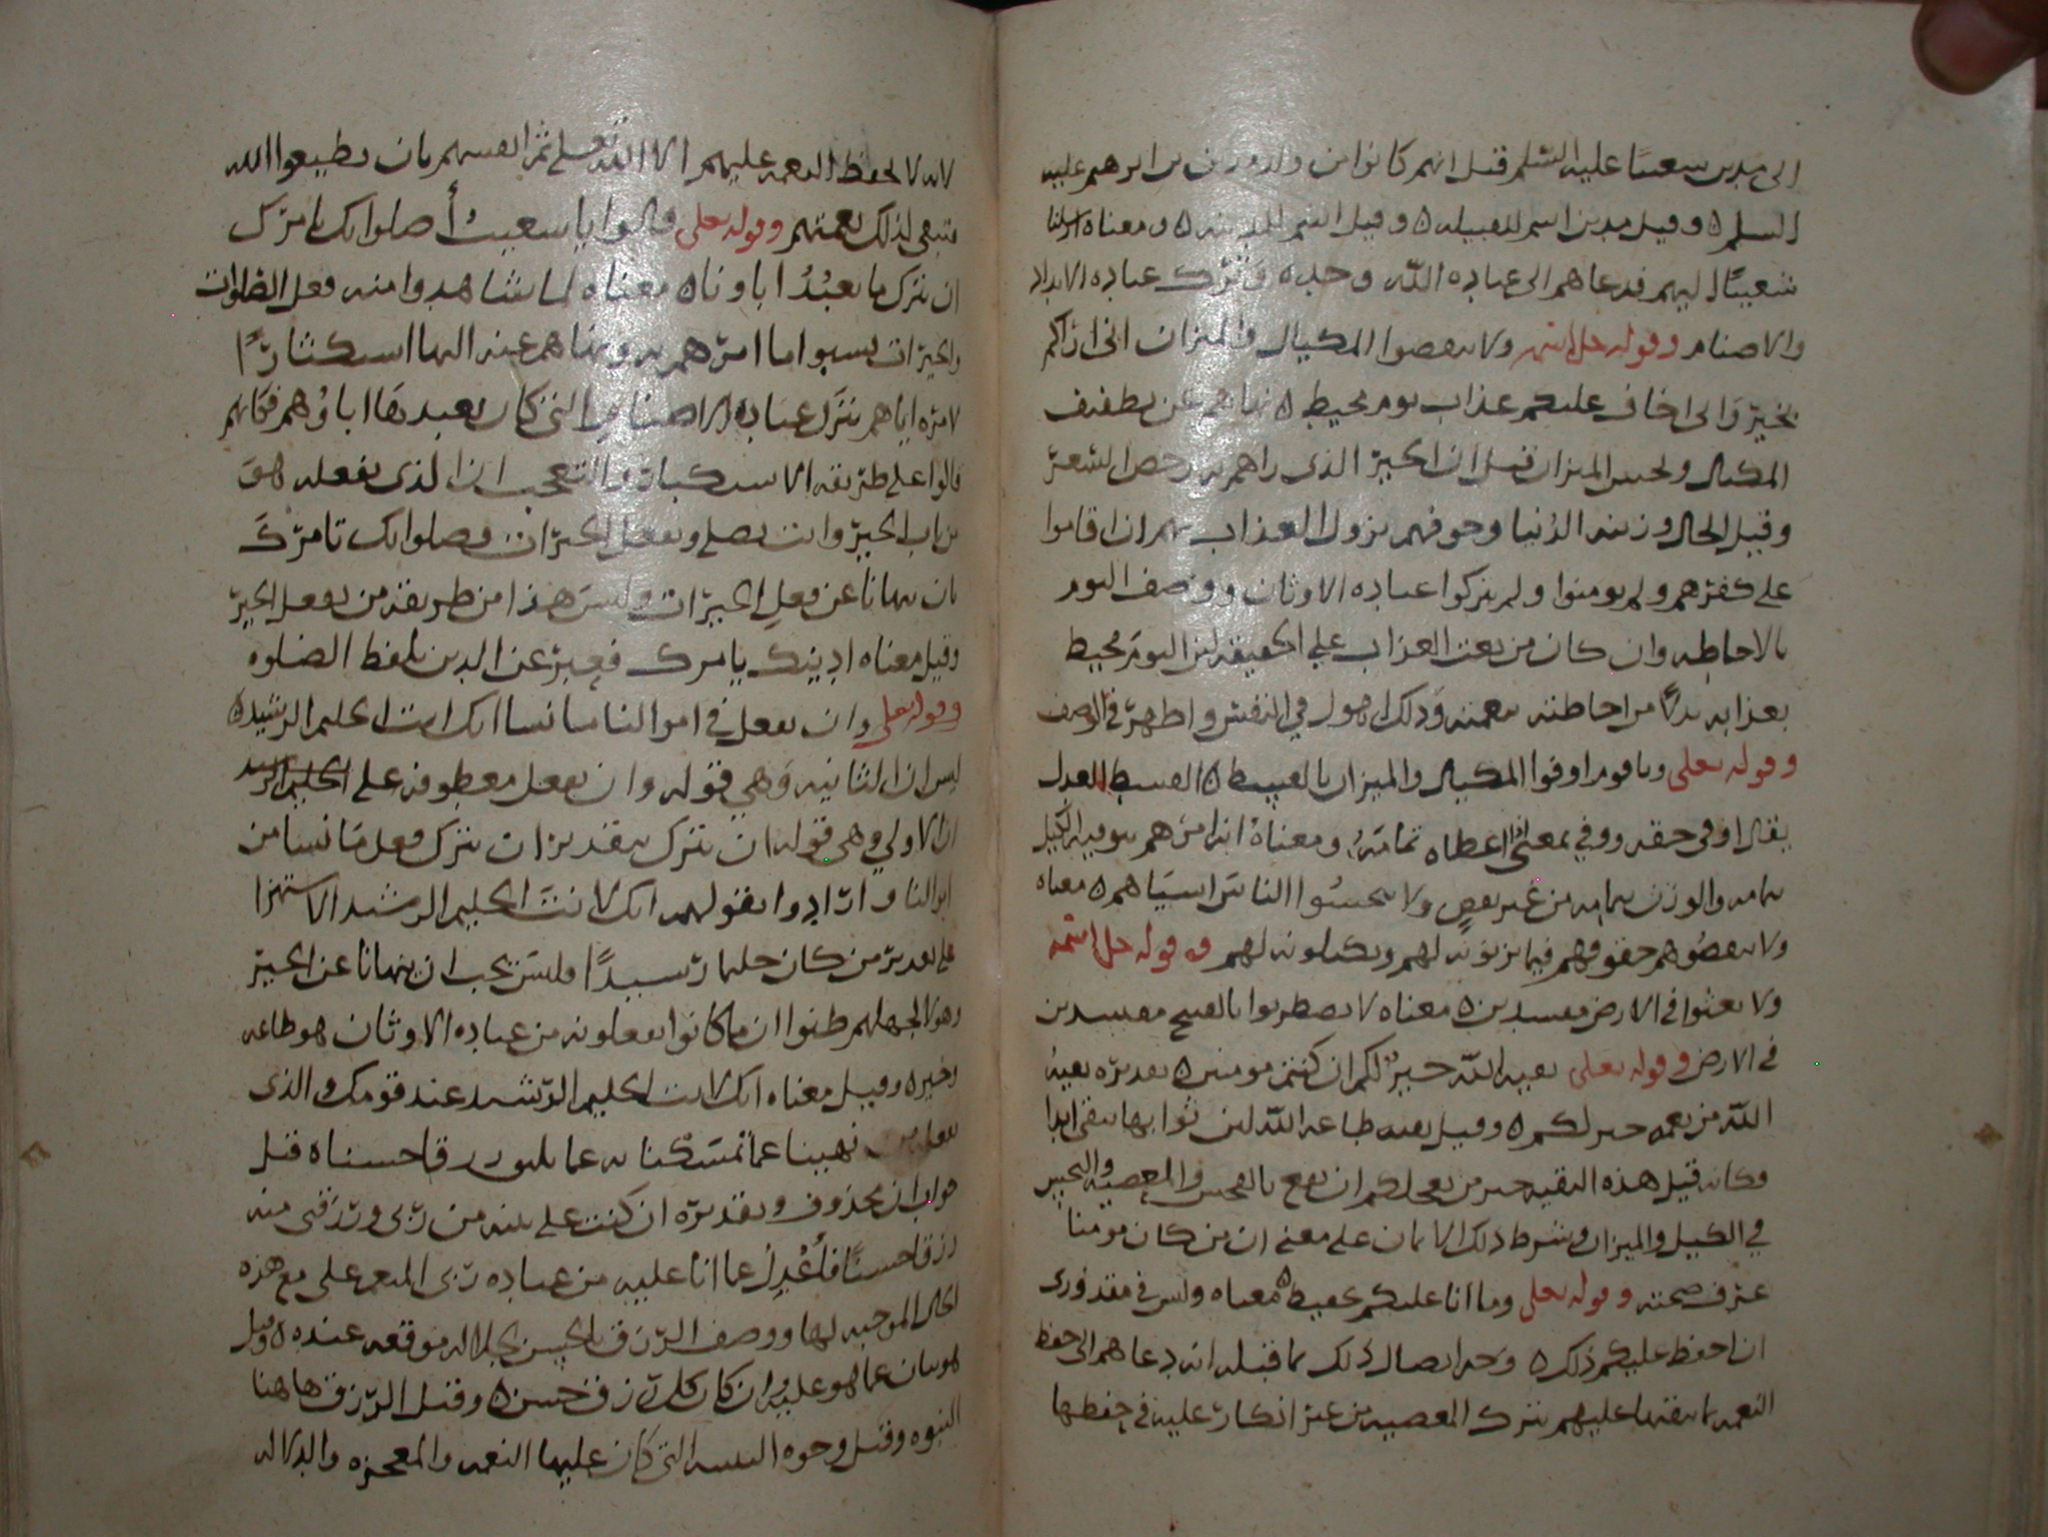 الى مدين شعيبا عليه السلم قيل انهم كانوا من ولد مدين بن ابرهيم عليه
السلم ٥ وقيل مدين اسم للقبيله ٥ وقيل اسم للمدينه ٥ ومعناه ارسلنا
شعيبًا اليهم فدعاهم الى عباده الله وحده وترك عباده الانداد
والاصنام وقوله جل اسمه ولا تنقصوا المكيال والميزان اني اراكم
بخير وانى اخاف عليكم عذاب يوم محيط ٥ نهاهم عن تطفيف
المكيال وبخس الميزان قيل ان الخير الذى راهم به رخص السعر
وقيل المال وزينه الدنيا وخوفهم نزول العذاب بهم ان اقاموا
على كفرهم ولم يومنوا ولم يتركوا عباده الاوثان ووصف اليوم
بالاحاطه وان كان من نعت العذاب على الحقيقه لان اليوم محيط
بعذابه بدلًا من احاطته بنعمته وذلك اهول في النفس واظهر في الوصف
وقوله تعلى وياقوم اوفوا المكيال والميزان بالقسط ٥ القسط العدل
يقال اوفى حقه ووفي بمعنى اعطاه تمامه ومعناه انه امرهم بتوفيه الكيل
بتمامه والوزن بتمامه من غير نقص ولا تبخسوا الناس اشياهم ٥ معناه
ولا تنقصوهم حقوقهم فيما تزنونه لهم وتكيلونه لهم ٥ وقوله جل اسمه
ولا تعثوا في الارض مفسدين ٥ معناه لا تضطربوا بالقبيح مفسدين
في الارض وقوله تعلى بقيه الله خيرٌ لكم ان كنتم مومنين ٥ تقديره بقيه
الله من نعمه خير لكم ٥ وقيل بقيه طاعه الله لان ثوابها يبقى ابدا
وكانه قيل هذه البقيه خير من تعجلكم النفع بالبخس والمعصيه والتجبر
في الكيل والميزان وشرط ذلك الايمان على معنى ان من كان مومنا
عرف صحته وقوله تعلى وما انا عليكم بحفيظ ٥ معناه وليس في مقدورى
ان احفظ عليكم ذلك ٥ وجه اتصال ذلك بما قبله انه دعاهم الى حفظ
النعمه بما يبقيها عليهم بترك المعصيه من غير اتكار عليه في حفظها
لانه لا يحفظ النعمه عليهم الا الله تعلى ثم انفسهم بان يطيعوا الله
فتبقى لذلك نعمتهم وقوله تعلى قالوا ياشعيب أصلواتك تامرك
ان نترك ما يعبُدُ اباوناه معناه لما شاهدوا منه فعل الصلوات
والخيرات نسبوا ما امرهم به ونهاهم عنه اليها استكثارًا
لامره اياهم بترك عباده الاصنام التي كان يعبدها اباؤهم فكانهم
قالوا على طريقه الاستكبار والتعجب ان الذى تفعله هو
من باب الخير وانت تصلى وتفعل الخيرات وصلواتك تامرك
بان تنهانا عن فعل الخيرات وليس هذا من طريقه من يفعل الخير
وقيل معناه ادينك يامرك فعبر عن الدين بلفظ الصلوه
وقوله تعلى وان نفعل في اموالنا ما نشا انك لانت الحليم الرشيد ٥
ليس ان الثانيه وهي قوله وان نفعل معطوفه على
ان الاولي وهى قوله ان نترك بتقدير ان نترك فعل ما نشا من
اموالنا وارادوا بقولهم انك لانت الحليم الرشيد الاستهزا
على تقدير من كان حليما رشيدًا فليس يجب ان ينهانا عن الخير
وهولا لجهلهم ظنوا ان ما كانوا يفعلونه من عباده الاوثان هو طاعه
وخير ٥ وقيل معناه انك لانت الحليم الرشيد عند قومك والذى
نهيتنا عما تمسكنا به عما رزقا حسنا ٥ قيل
جواب ان محذوف وتقديره ان كنت على بينه من ربى ورزقنى منه
رزقا حسنًا فأعدل عما انا عليه من عباده ربى المنعم على مع هذه
الحال الموجبه لها ووصف الرزق بالحسن لجلاله موقعه عنده ٥ وقيل
هو بيان عما هو عليه وان كان كل رزق حسن ٥ وقيل الرزق هاهنا
النبوه وقيل وجوه البينه التى كان عليها النعمه والمعجزه والدلاله